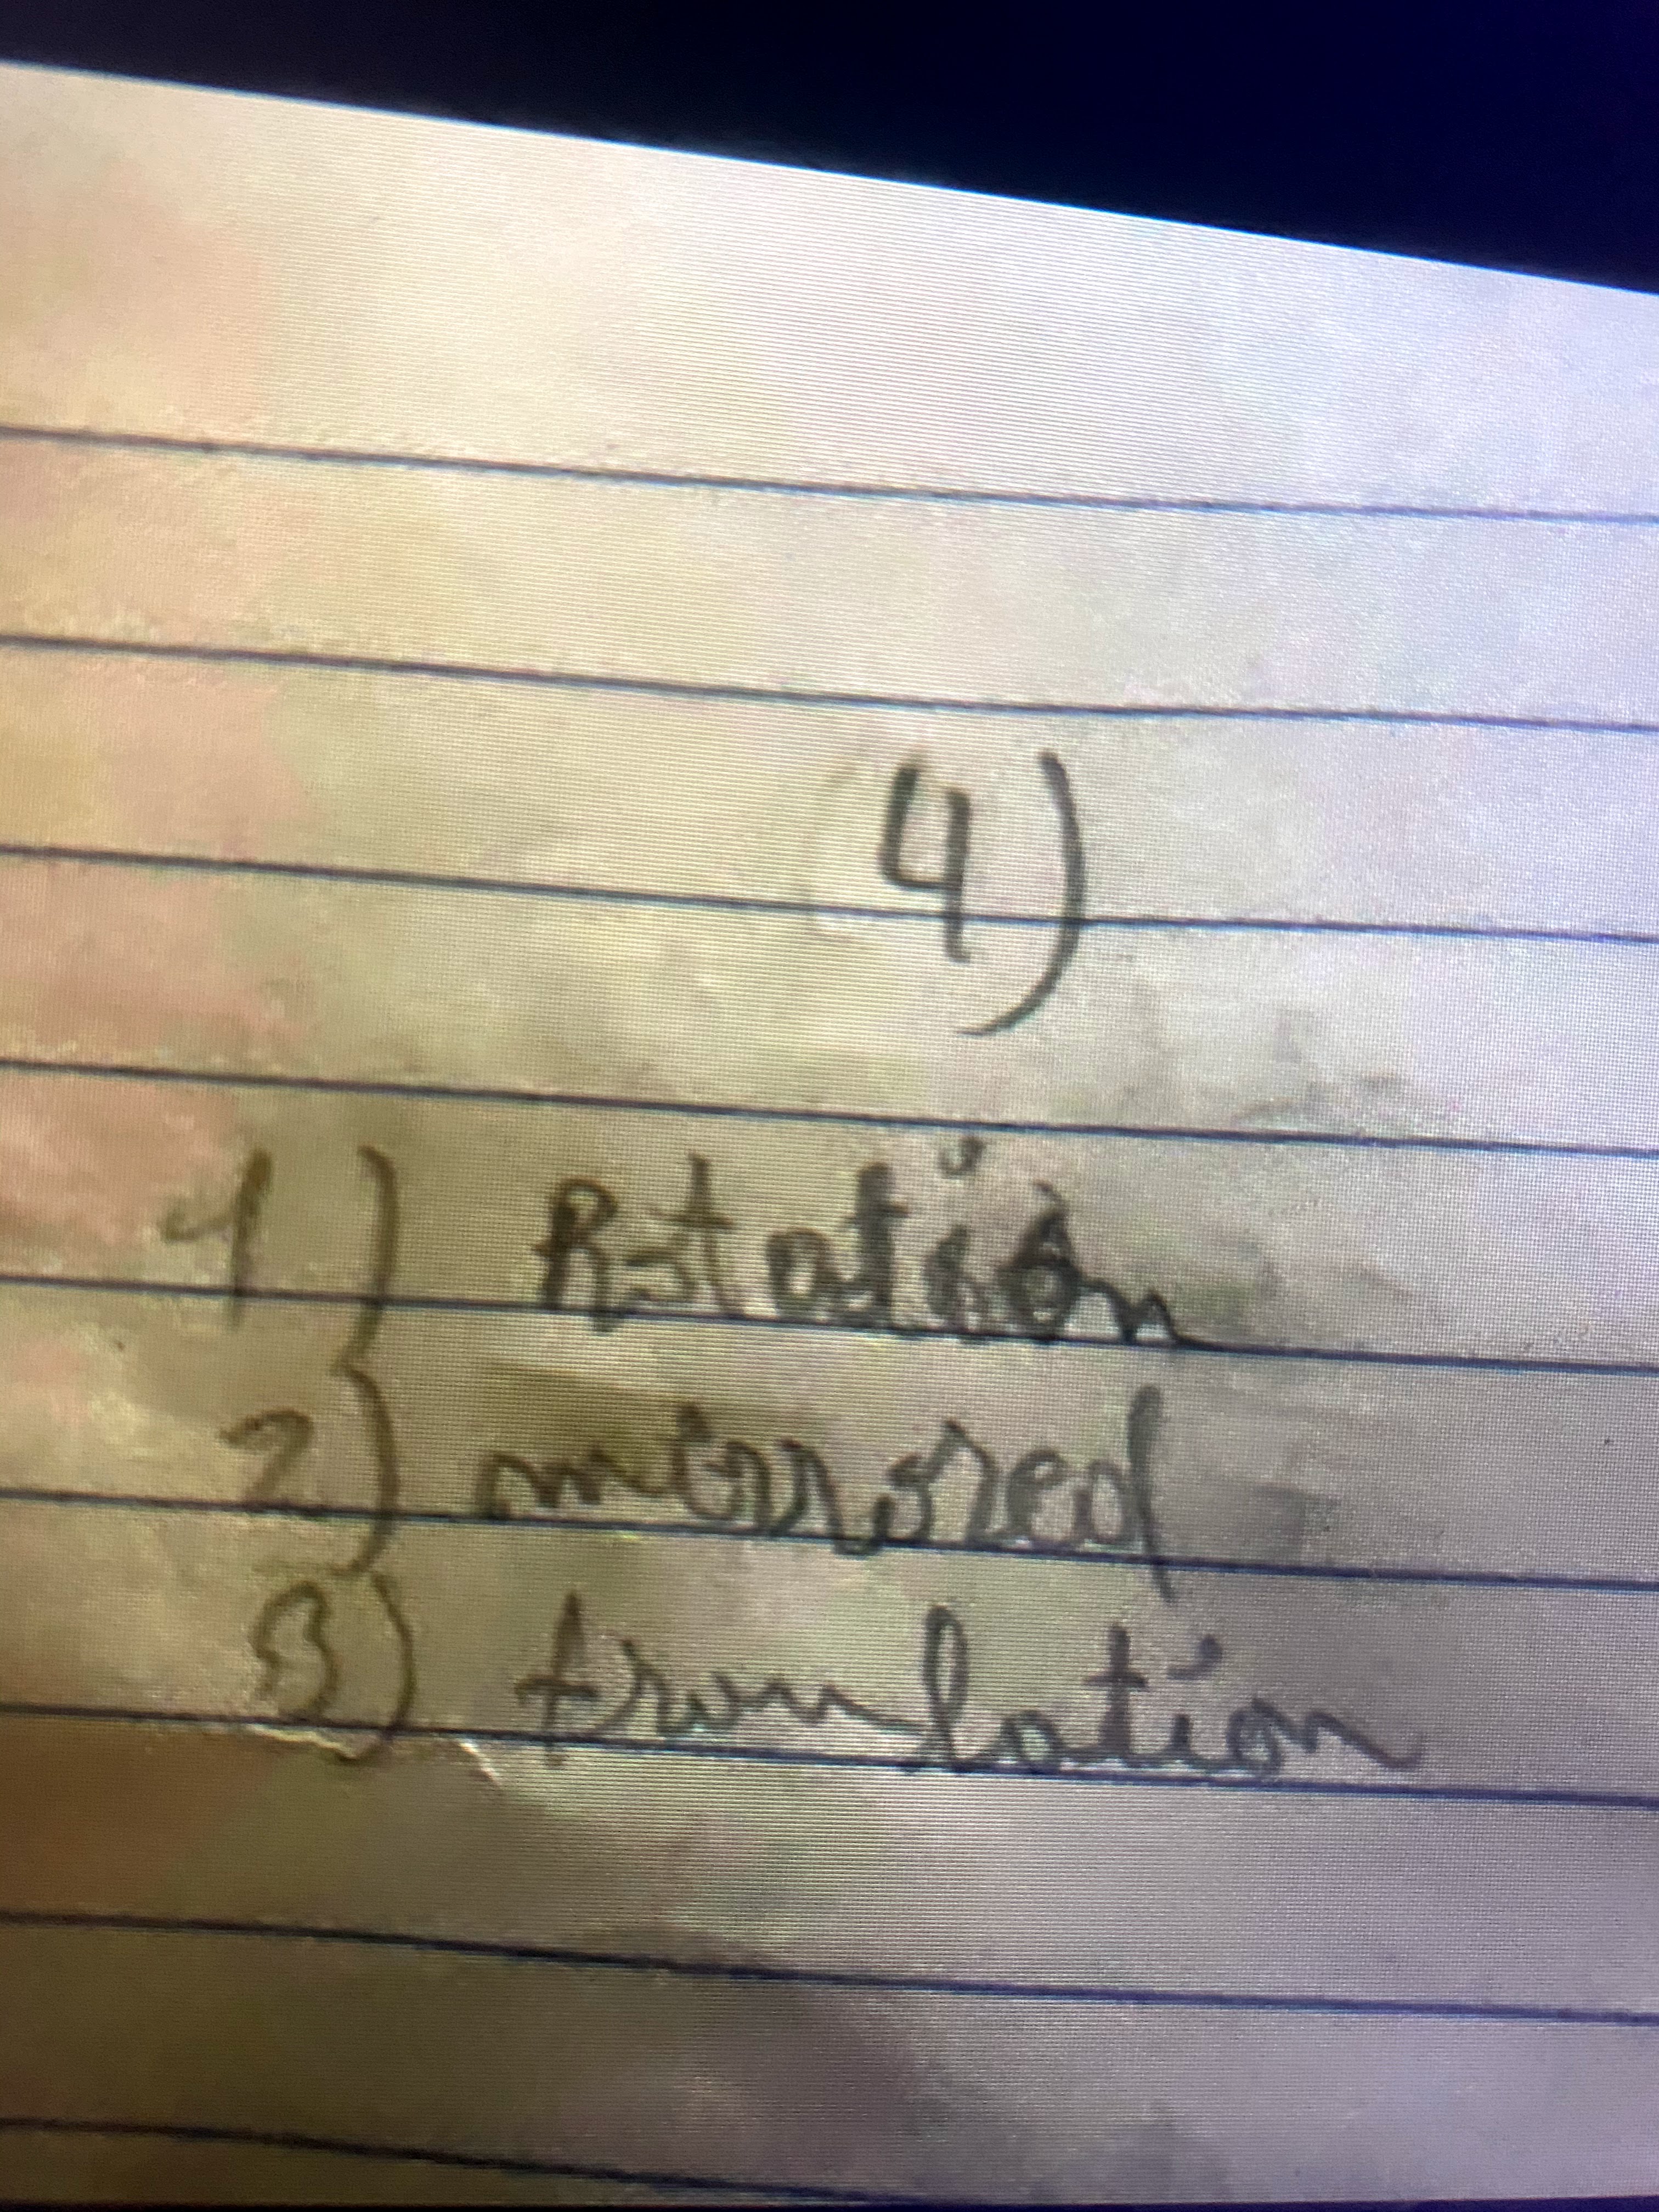 4)
1) Rotation
2) mirrored
3) tranlation